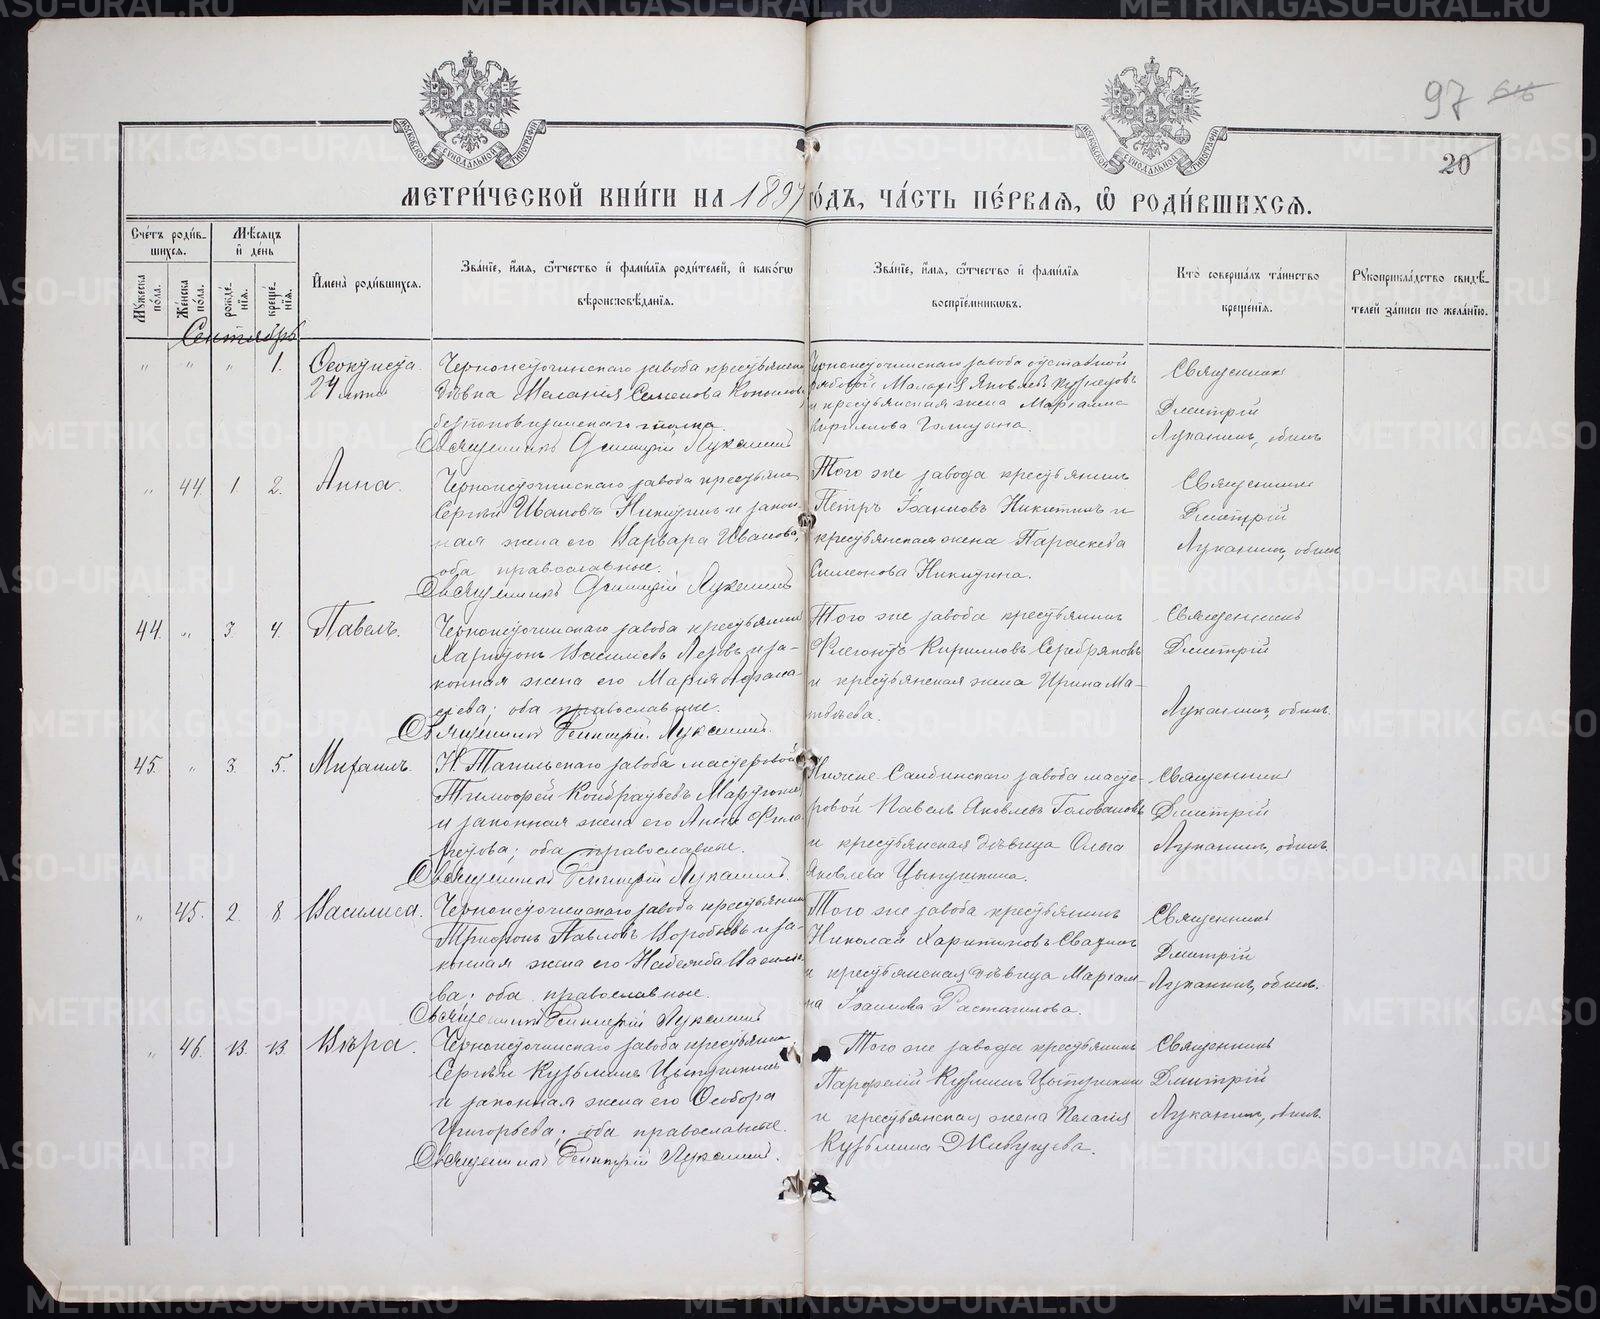 97 646
20
МЕТРИЧЕСКОЙ КНИГИ НА 1897 ГОДЪ, ЧАСТЬ ПЕРВАЯ, Ѡ РОДИВШИХСЯ.
Счетъ родившихся.
Мужеска пола.
Женска пола.
Мѣсяцъ и день
рожденія.
крещенія.
Имена родившихся.
Званіе, имя, ѿтчество и фамилія родителей, и какогѡ вѣроисповѣданія.
Званіе, имя, ѿтчество и фамилія воспріемникѡвъ.
Кто совершалъ таинство крещенія.
Рукоприкладство свидѣтелей записи по желанію.
Сентябрь
" " " 1. Ѳеоктиста
24 лѣтъ
Черноисточинскаго завода крестьянская
дѣвка Меланія Семенова
безпоповщинскаго толка.
Священникъ Димитрій Луканинъ
Черноисточинскаго завода отставной
Яковлевъ Кузнецовъ
и крестьянская жена Маріамна
Кириллова Голицына.
Священникъ
Дмитрій
Луканинъ, общ.
" 44. 1. 2. Анна.
Черноисточинскаго завода крестьянинъ
Сергѣй Ивановъ Никитинъ и закон-
ная жена его Варвара Иванова,
оба православные.
Священникъ Димитрій Луканинъ
Того же завода крестьянинъ
Петръ Іоанновъ Никитинъ и
крестьянская жена Параскева
Симеонова Никитина.
Священникъ
Дмитрій
Луканинъ, общ.
44. " 3. 4. Павелъ.
Черноисточинскаго завода крестьянинъ
Харитонъ Василіевъ и за-
конная жена его Марія Афана-
сіева; оба православные.
Священникъ Димитрій Луканинъ.
Того же завода крестьянинъ
Флегонтъ Кирилловъ Серебряковъ
и крестьянская жена Ирина Ма-
твѣева.
Священникъ
Дмитрій
Луканинъ, общ.
45. " 3. 5. Михаилъ.
Н. Тагильскаго завода мастеровой
Тимофей Кондратьевъ
и законная жена его Анна Фила-
това; оба православные.
Священникъ Димитрій Луканинъ.
Нижне Салдинскаго завода масте-
ровой Павелъ Яковлевъ Головановъ
и крестьянская дѣвица Ольга
Яковлева Цыпушкина.
Священникъ
Дмитрій
Луканинъ, общ.
" 45. 2. 8 Василиса.
Черноисточинскаго завода крестьянинъ
Трифонъ Павловъ Воробьевъ и за-
конная жена его Надежда Василье-
ва; оба православные.
Священникъ Димитрій Луканинъ
Того же завода крестьянинъ
Николай Харитоновъ Свахинъ
и крестьянская дѣвица Маріам-
на Іоаннова Растагилова.
Священникъ
Дмитрій
Луканинъ, общ.
" 46. 13. 13. Вѣра.
Черноисточинскаго завода крестьянинъ
Сергѣй Кузьминъ Цыпушкинъ
и законная жена его Ѳеодора
Григорьева; оба православные.
Священникъ Димитрій Луканинъ.
Того же завода крестьянинъ
Парфеній Кузминъ Цыпушкинъ
и крестьянская жена Пелагія
Кузьмина Живутцева.
Священникъ
Дмитрій
Луканинъ, общ.
METRIKI.GASO-URAL.RU